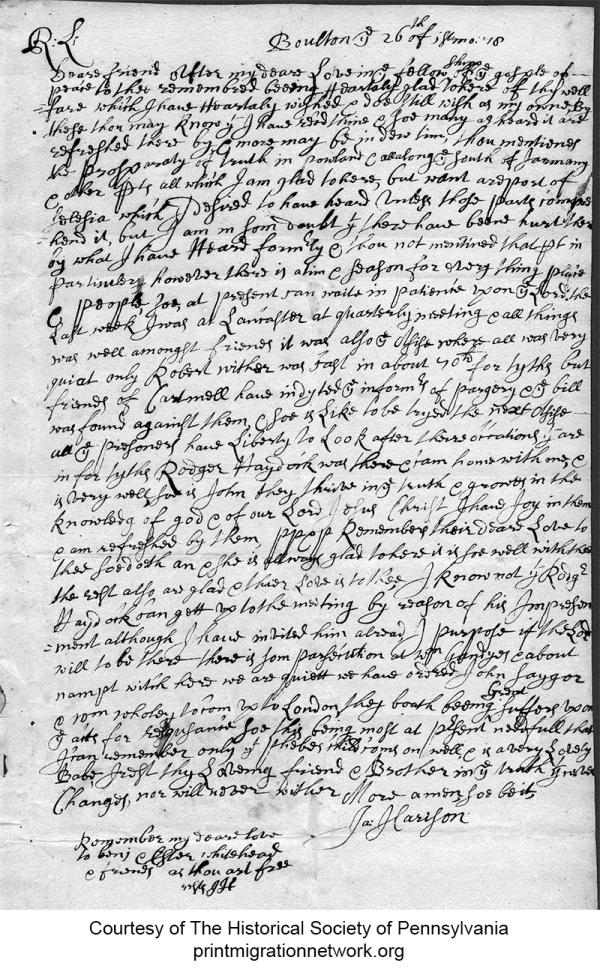 R: L:
Boulton ye 26th of 1st mo: 78
Deare friend After my deare Love in ye fellow ship of ye gosple of
peace to thee remembred beeing Heartaly glad to here of thy well
fare which I have Heartaly wished & doe still wish as my owne, By
these thou may know yt I have recd thine & soe many as heard it are
refreshed there by & more may be in dew tim, thou mentiones
the prosparaty of truth in powland & allalong ye south of Jarmany
& other pts all which I am glad to here, but want a report of
Selesia which I desired to have heard unless those parts compre
hend it, but I am in som doubt yt there have beene hurt there
by what I have Heard formrly & thou not mentined that pt in
particulery however there is a tim & season for every thing place
& people soe, at present can waite in patience upon ye Lord, the
Last week I was at Lancaster at quarterly meeting & all things
was well amongst friends it was also ye Assise where all was very
quiat only Robert wither was Cast in about 70lb for tyths but
friends of Cartmell have indyted ye informrs of pargery & ye bill
was found against them & soe is Like to be tryed the next Assise
all ye presoners have Liberty to Look after there occations yt are
in for tyths Rodger Haydock was there & cam home with me, &
is very well, soe is John they thrive in ye truth & growes in the
knowledg of god & of our Lord Jesus Christ I have Joy in them
& am refreshed by them, Remember their deare Love to
thee soe doth an & she is allways glad to here it is soe well with thee
the rest also are glad & thier Love is to thee I know not yt Rodgr
Haydock can gett up to the meeting by reason of his Impreson
ment although I have invited him alread I purpose if the Lord
will to be there there is som parsecution at & about
nampt witch here we are quiett we have ordred John Saygor
& to com up to London they boath beeing Great sufferrs upon
ye acts for soe this being most at psent needfull that
I can remember only yt Phebes coms on well, & is a very Lovely
Babe I rest thy Loveing friend & Brother in ye truth yt never
Changes, nor will never wither More amen, soe be it
Ja: Harrison
Remember my deare love
to benj & Ester whitehead
& friends as thou art free
Courtesy of The Historical Society of Pennsylvania
printmigrationnetwork.org